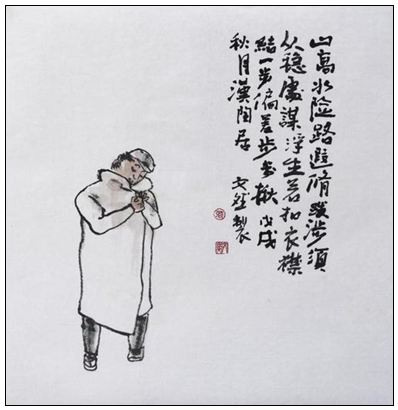 山高水险路迢脩跋涉须
从稳處謀浮生若扣衣襟
結一步偏差步步揪戊戌
秋月漢陶居
文 製